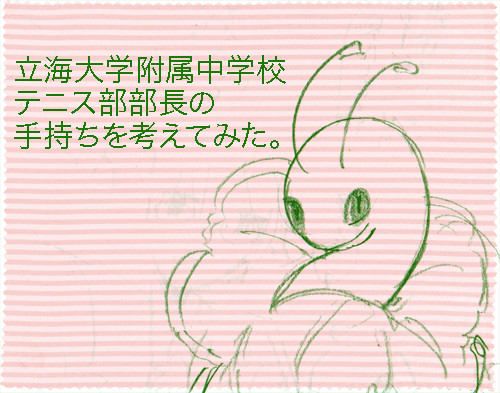 立海大学附属中学校
テニス部部長の
手持ちを考えてみた。